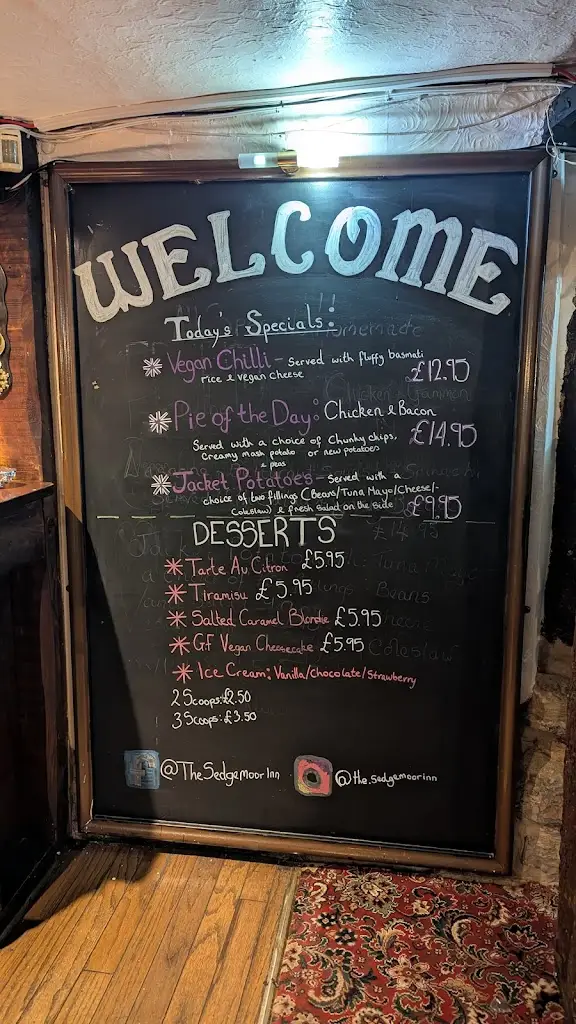 WELCOME
Today's Specials:
Vegan Chilli - Served with fluffy basmati
rice & vegan cheese
£12.95
Pie of the Day: Chicken & Bacon
£14.95
Served with a choice of Chunky chips,
creamy mash potato or new potatoes
& peas
Jacket Potatoes - Served with a
choice of two fillings (Beans/Tuna Mayo/Cheese/-
Coleslaw) & fresh salad on the side
£9.95
DESSERTS
Tarte Au Citron £5.95
Tiramisu £5.95
Salted Caramel Blondie £5.95
GF Vegan Cheesecake £5.95
Ice Cream: Vanilla/chocolate/Strawberry
2 Scoops: £2.50
3 Scoops: £3.50
@TheSedgemoorInn
@the.sedgemoorinn